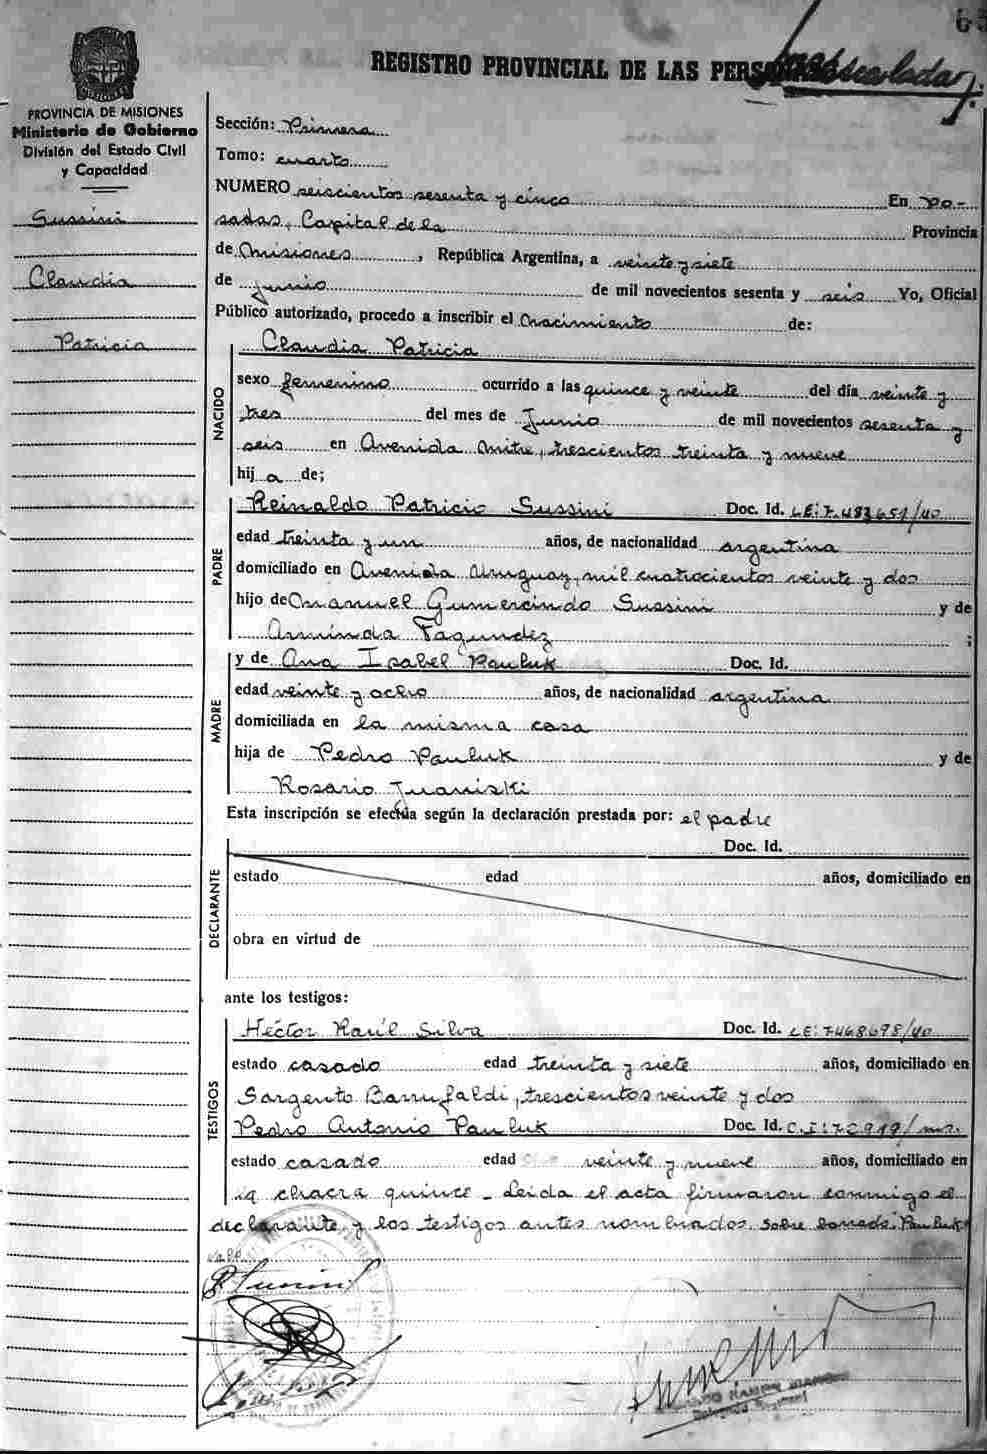 REGISTRO PROVINCIAL DE LAS
PROVINCIA DE MISIONES
Ministerio de Gobierno
División del Estado Civil
y Capacidad
Sussini
Claudia
Patricia
Sección: Primera
Tomo: cuarto
NUMERO seiscientos sesenta y cinco En Po-
sadas, Capital de la Provincia
de Misiones, República Argentina, a veinte y siete
de Junio de mil novecientos sesenta y seis Yo, Oficial
Público autorizado, procedo a inscribir el Nacimiento de:
NACIDO
Claudia Patricia
sexo femenino ocurrido a las quince y veinte del día veinte y
tres del mes de Junio de mil novecientos sesenta y
seis en Avenida Mitre, trescientos treinta y nueve
hija de;
PADRE
Reinaldo Patricio Sussini Doc. Id. LE: 7.483651/40
edad treinta y un años, de nacionalidad argentina
domiciliado en Avenida Uruguay, mil cuatrocientos veinte y dos
hijo de Manuel Gumercindo Sussini y de
Arminda Fagundez ;
MADRE
y de Ana Isabel Pauluk Doc. Id.
edad veinte y ocho años, de nacionalidad argentina
domiciliada en la misma casa
hija de Pedro Pauluk y de
Rosario Juaniski
Esta inscripción se efectúa según la declaración prestada por: el padre
DECLARANTE
Doc. Id.
estado edad años, domiciliado en
obra en virtud de
ante los testigos:
TESTIGOS
Héctor Raúl Silva Doc. Id. LE: 7468698/40
estado casado edad treinta y siete años, domiciliado en
Sargento Barrufaldi, trescientos veinte y dos
Pedro Antonio Pauluk Doc. Id. C.I: 72919/ms.
estado casado edad veinte y nueve años, domiciliado en
la chacra quince - Leida el acta firmaron conmigo el
declarante y los testigos antes nombrados. Sobre borrado: Pauluk
Vale